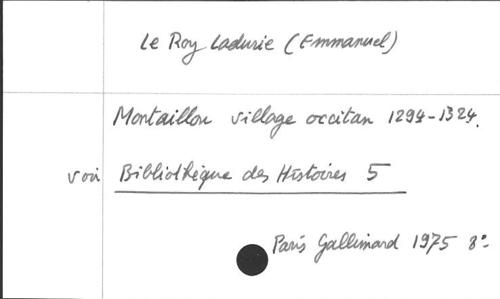 Le Roy Ladurie (Emmanuel)
Montaillou village occitan 1294-1324.
voir Bibliothèque des Histoires 5
Paris Gallimard 1975 8°